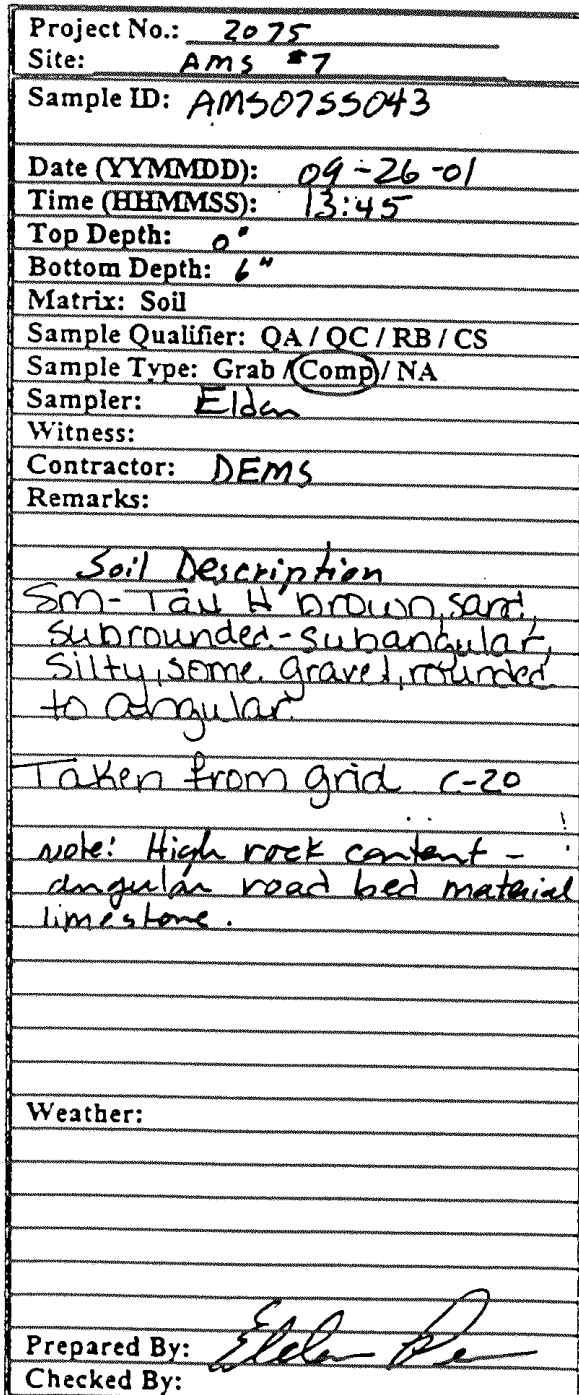 Project No.: 2075
Site: AMS #7
Sample ID: AMS07SS043
Date (YYMMDD): 09-26-01
Time (HHMMSS): 13:45
Top Depth: 0"
Bottom Depth: 6"
Matrix: Soil
Sample Qualifier: QA / QC / RB / CS
Sample Type: Grab / Comp / NA
Sampler: Elden
Witness:
Contractor: DEMS
Remarks:
Soil Description
Sm- Tau lt brown, sand,
subrounded-subangular,
silty, some gravel, rounded
to angular.
Taken from grid C-20
note: High rock content -
angular road bed material
limestone.
Weather:
Prepared By: Elden
Checked By: